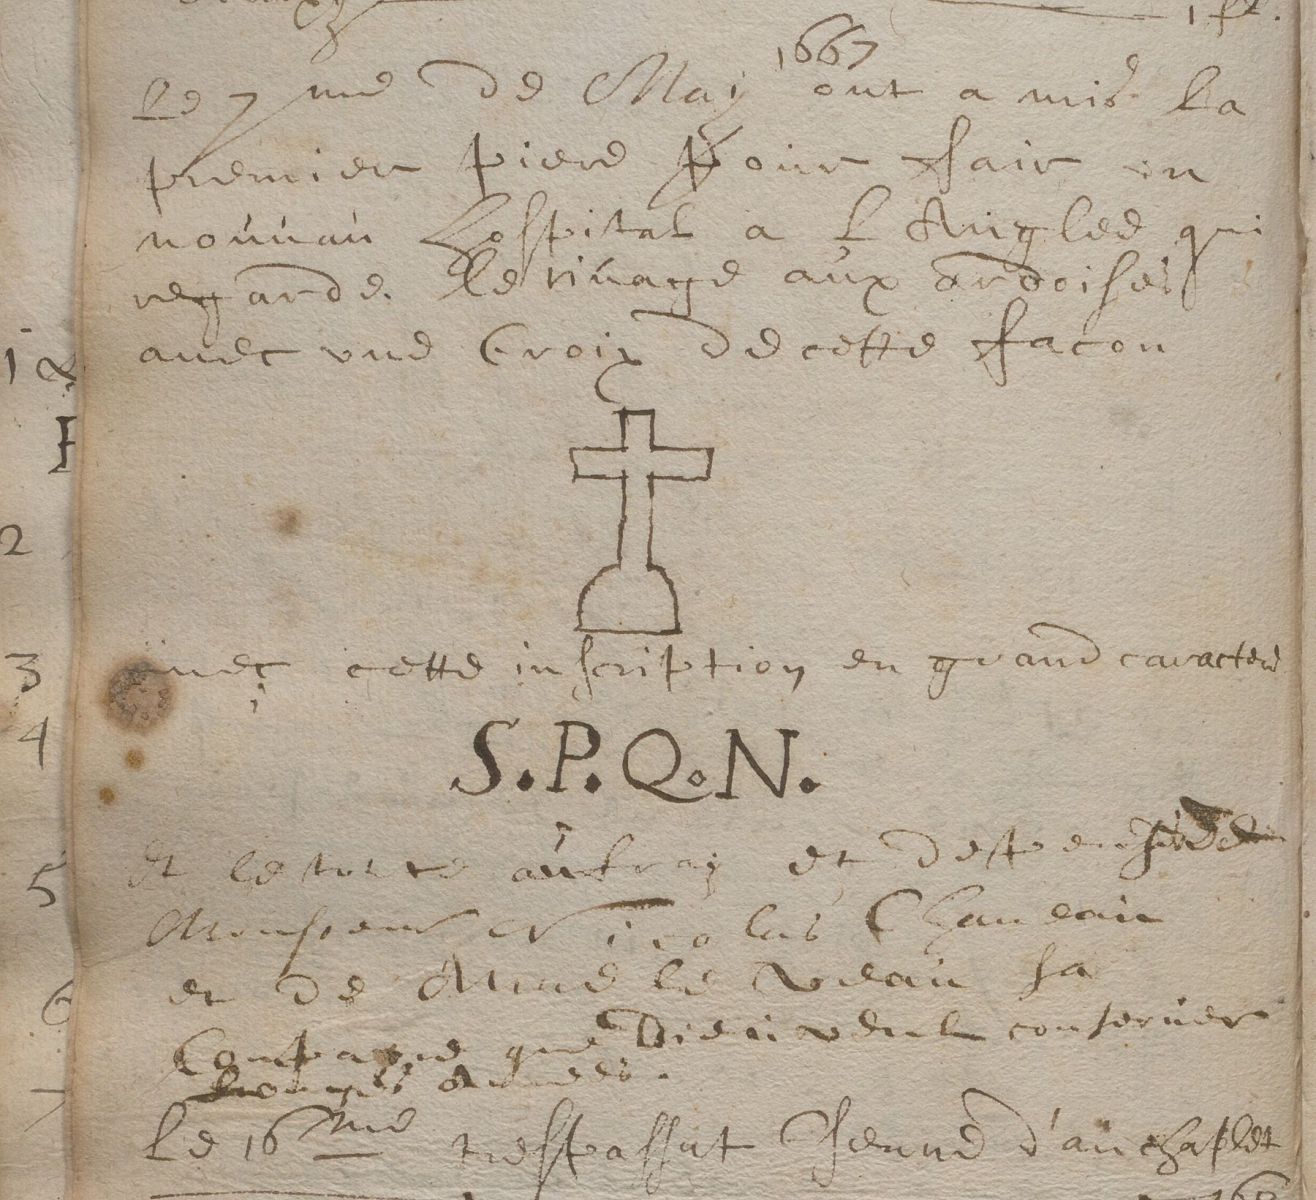 1667
Le 7me de May ont a mis la
premier piere pour fair un
nouuau hospital a l Anglee qui
regarde le riuage aux ardoises
auec vne Croix de cette facon
auec cette inscription en grand caractere
S.P.Q.N.
et le tout te au fraij et
Monsieur Nicolas Chaueau
et de Anne le veau sa
Compagne que Dieu veul conseruer
longes années.
Le 16me trespassat Jenne d'auchaplet
1
2
3
4
5
6
7